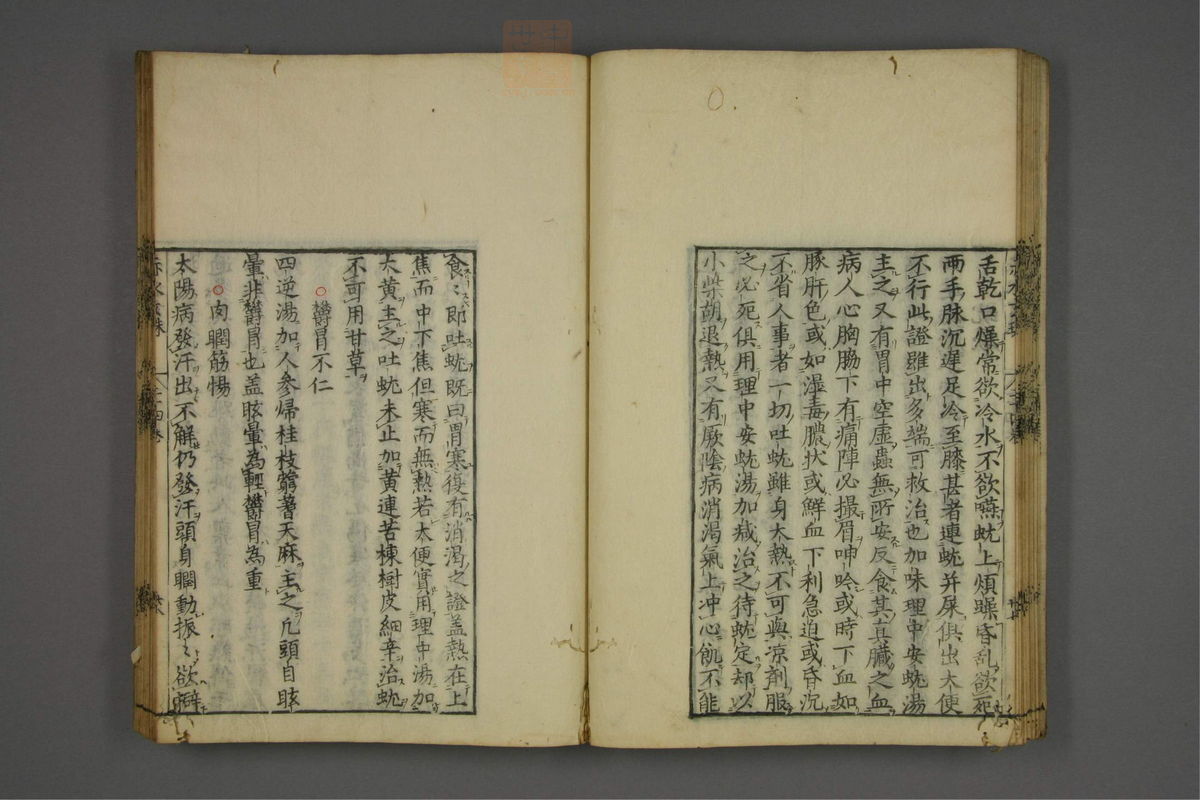 舌乾口燥常欲冷水不欲嚥蚘上煩躁昏乱欲死
兩手脉沉遲足冷至膝甚者連蚘并屎俱出大便
不行此證雖出多端可救治也加味理中安蚘湯
主之又有胃中空虛蟲無所安反食其真臟之血
病人心胸脇下有痛陣必撮眉呻吟或時下血如
豚肝色或如湿毒膿状或鮮血下利急迫或昏沉
不省人事者一切吐蚘雖身大熱不可與凉劑服
之必死俱用理中安蚘湯加减治之待蚘定却以
小柴胡退熱又有厥陰病消渴氣上冲心飢不能
食〻即吐蚘既曰胃寒復有消渴之證盖熱在上
焦而中下焦但寒而無熱若大便實用理中湯加
大黄主之吐蚘未止加黄連苦楝樹皮細辛治蚘
不可用甘草
○欝冒不仁
四逆湯加人參歸桂枝蓍天麻主之凢頭自眩
暈非欝冒也盖眩暈為輕欝冒為重
○肉瞤筋惕
太陽病發汗出不解仍發汗頭身瞤動振〻欲擗
赤水玄珠